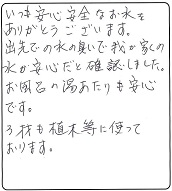 いつも安心安全なお水を
ありがとうございます。
出先での水の臭いで我が家の
水が安心だと確認しました。
お風呂の湯あたりも安心
です。
う材も植木等に使って
おります。